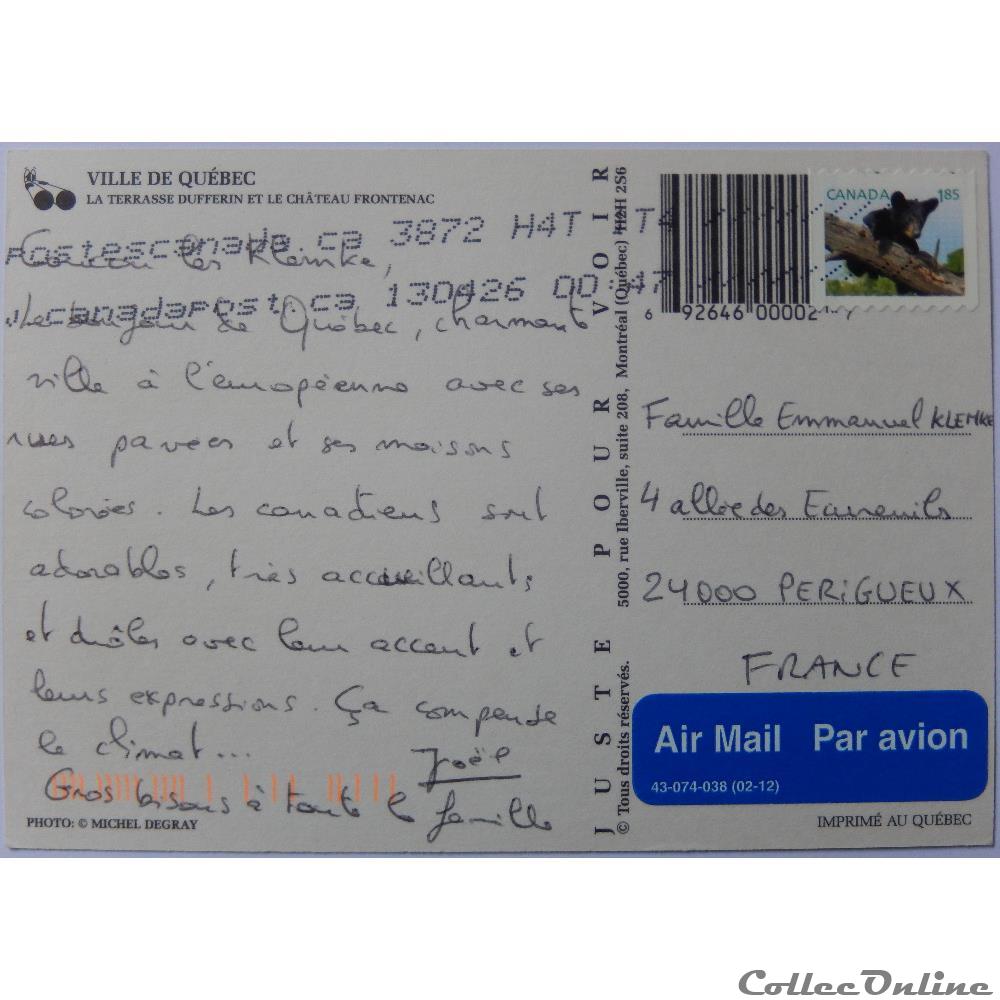 VILLE DE QUÉBEC
LA TERRASSE DUFFERIN ET LE CHÂTEAU FRONTENAC
postescanada.ca 3872 H4T 1T4
canadapost.ca 130426 00:47
Coucou les Klemke,
de Québec, charmante
ville à l'européenne avec ses
rues pavées et ses maisons
colorées. Les canadiens sont
adorables, très accueillants
et drôles avec leur accent et
leurs expressions. Ça compense
le climat...
Joël
Gros bisous à toute la famille
PHOTO: © MICHEL DEGRAY
JUSTE POUR VOIR
© Tous droits réservés. 5000, rue Iberville, suite 208, Montréal (Québec) H2H 2S6
6 92646 00002
CANADA 1.85
Famille Emmanuel KLEMKE
4 allée des Ecureuils
24000 PERIGUEUX
FRANCE
Air Mail Par avion
43-074-038 (02-12)
IMPRIMÉ AU QUÉBEC
CollecOnline